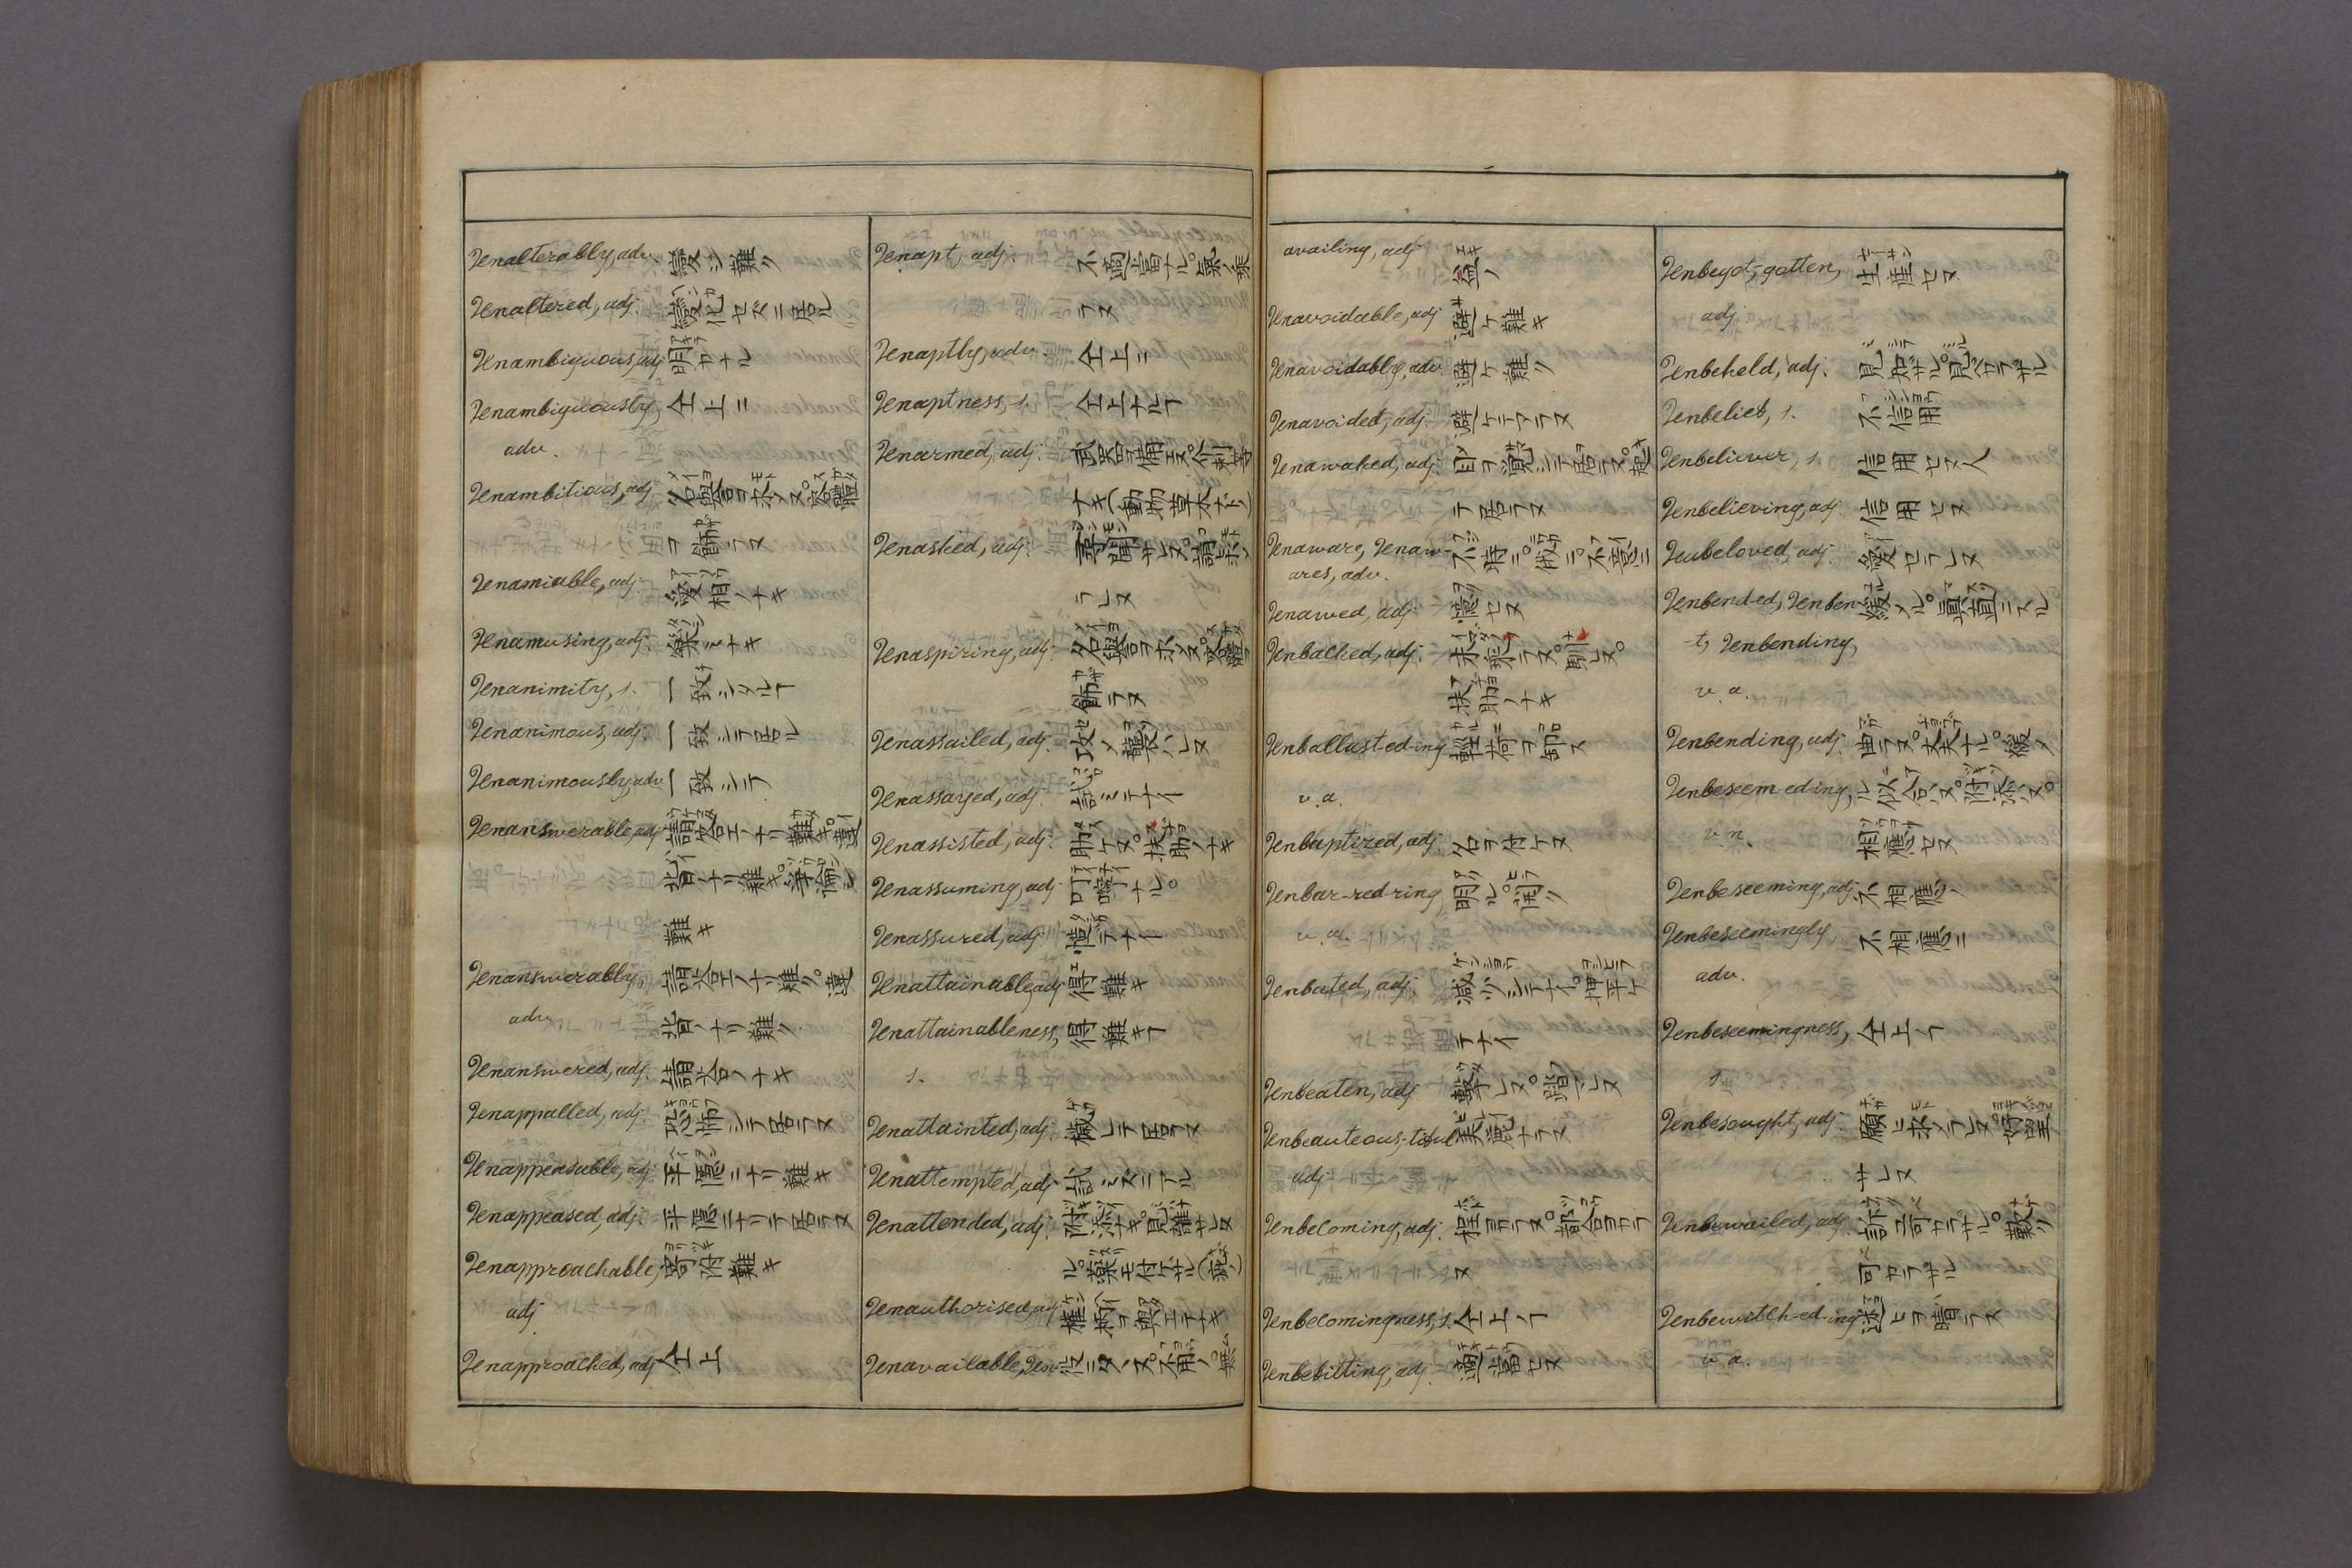 Unalterably, adv. 變ジ難ク
Unaltered, adj. 變化セズニ居ル
Unambiguous, adj 明カナル
Unambiguously, 仝上ニ
adv.
Unambitious, adj 名譽ヲ求メヌ。容體
ヲ飾ラヌ
Unamiable, adj. 愛相ノナキ
Unamusing, adj. 樂ミナキ
Unanimity, s. 一致シタルヿ
Unanimous, adj. 一致シテ居ル
Unanimously, adv 一致シテ
Unanswerable, adj 請答エノナリ難キ。違
背ノナリ難キ。
難キ
Unanswerably, 請答エノナリ難ク。違
adv. 背ノナリ難ク
Unanswered, adj. 請答ノナキ
Unappalled, adj. 恐怖シテ居ラヌ
Unappeasable, adj. 平穩ニナリ難キ
Unappeased, adj. 平穩ニナリテ居ラヌ
Unapproachable, 寄附難キ
adj
Unapproached, adj 仝上
Unapt, adj. 不適當ナル。氣ノ乗
ラヌ
Unaptly, adv. 仝上ニ
Unaptness, s. 仝上ナルヿ
Unarmed, adj. 武器ヲ備エヌ。介刺等
ナキ(動物草木ナド)
Unasked, adj. 尋問サレヌ。請ヒ求メ
ラレヌ
Unaspiring, adj. 名譽ヲ求メヌ。容體
飾ラヌ
Unassailed, adj. 攻メ襲ハレヌ
Unassayed, adj. 試ミテナイ
Unassisted, adj. 助ケヌ。扶助ノナキ
Unassuming, adj. 叮嚀ナル。
Unassured, adj. 慥デナイ
Unattainable, adj 得難キ
Unattainableness, 得難キヿ
s.
Unattainted, adj. 穢レテ居ラヌ
Unattempted, adj. 試ミズニアル
Unattended, adj. 附添ナキ。見離サレヌ
ル。藥モ付ケザル
Unauthorised, adj 權柄ヲ與エテナキ
Unavailable, Un- 役ニタヽヌ。不用ノ。無
availing, adj 益ノ
Unavoidable, adj 避ケ難キ
Unavoidably, adv 避ケ難ク
Unavoided, adj. 避ケテアラヌ
Unawaked, adj. 目ヲ覺シテ居ラヌ。起キ
テ居ラヌ
Unaware, Unaw- 不時ニ。故ニ。不意ニ
ares, adv.
Unawed, adj. 懼セヌ
Unbacked, adj. 未ダ乗ラヌ。馴レヌ。
扶助ノナキ
Unballast-ed-ing 輕荷ヲ卸ス
v. a.
Unbaptized, adj. 名ヲ付ケヌ
Unbar-red-ring, 明ル。開ク
v. a.
Unbated, adj. 減少シテナイ。押平ケ
テナイ
Unbeaten, adj 擊レヌ。踏マレヌ
Unbeauteous,-tiful 美麗ナラヌ
adj.
Unbecoming, adj. 程ヨカラヌ。都合ヨカラ
ヌ
Unbecomingness, s. 仝上ノヿ
Unbefitting, adj. 適當セヌ
Unbegot,-gotten, 生産セヌ
adj.
Unbeheld, adj. 見ヘザル。見ベカラザル
Unbelief, s. 不信用
Unbeliever, s. 信用セヌ人
Unbelieving, adj. 信用セヌ
Unbeloved, adj. 愛セラレヌ
Unbend-ed, Unben- 緩メル。真直ニスル
-t, Unbending,
v. a.
Unbending, adj. 曲ラヌ。丈夫ナル。緩メ
Unbeseem-ed-ing, ル似合ハヌ。附添ハヌ。
v. n. 相應セヌ
Unbeseeming, adj. 不相應ノ
Unbeseemingly, 不相應ニ
adv.
Unbeseemingness, 仝上ノヿ
s.
Unbesought, adj. 願ヒ求メラレヌ。好望
サレヌ
Unbewailed, adj. 訴ヱ可カラザル。歎ク
可カラザル
Unbewitch-ed-ing 迷ヒヲ晴ラス
v. a.